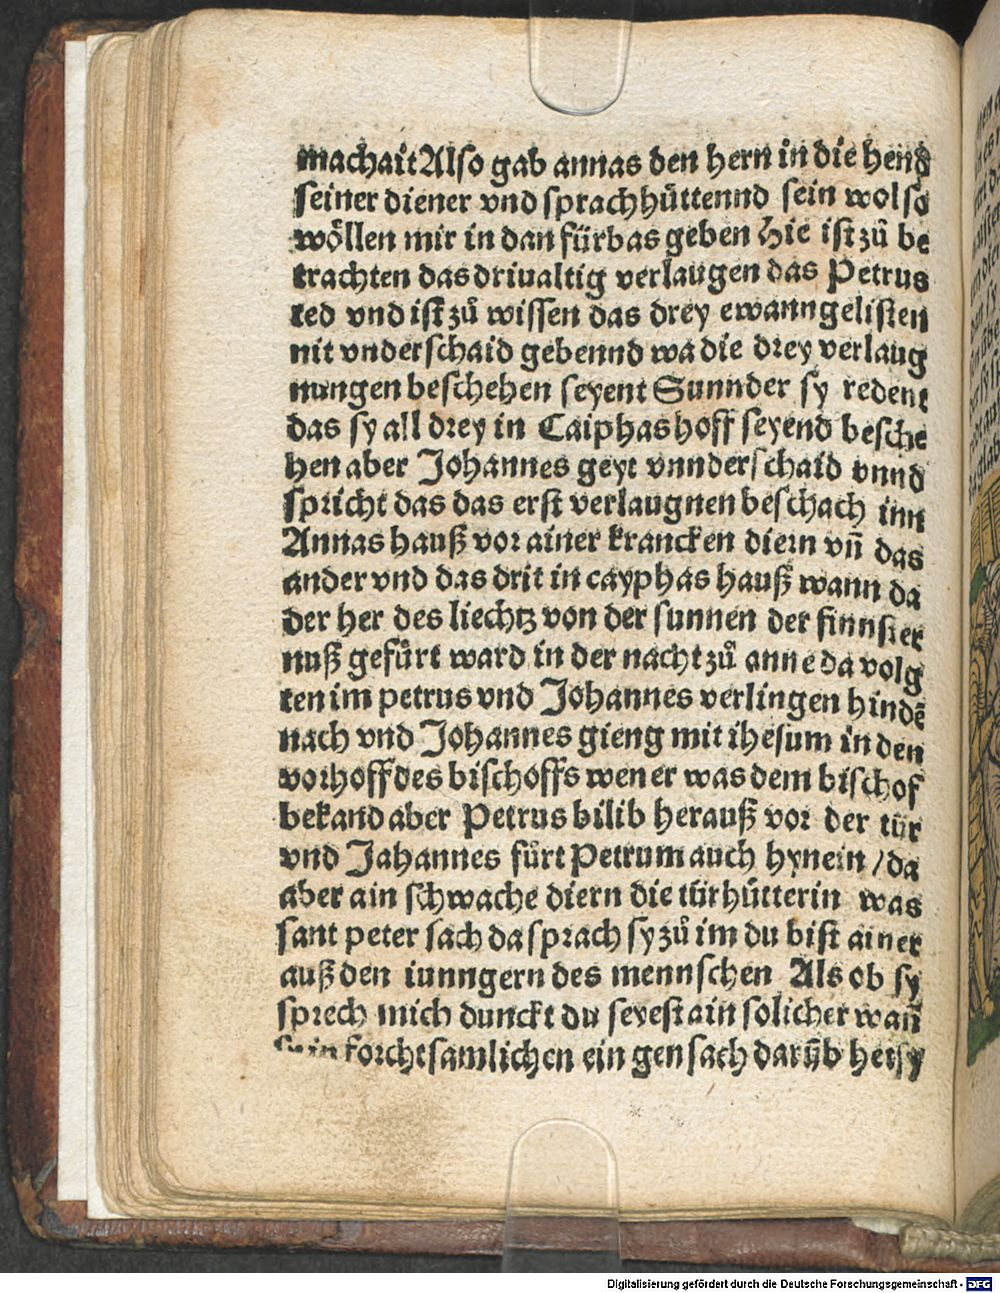 machait Also gab annas den hern in die hend
seiner diener vnd sprach hüttennd sein wol so
wöllen mir in dan fürbas geben Hie ist zů be
trachten das driualtig verlaugen das Petrus
ted vnd ist zů wissen das drey ewanngelisten
nit vnderschaid gebennd wa die drey verlaug
nungen beschehen seyent Sunnder sy redent
das sy all drey in Caiphas hoff seyend besche
hen aber Johannes geyt vnnderschaid vnnd
spricht das das erst verlaugnen beschach inn
Annas hauß vor ainer krancken diern vñ das
ander vnd das drit in cayphas hauß wann da
der her des liechtz von der sunnen der finnster
nuß gefůrt ward in der nacht zů anne da volg
ten im petrus vnd Johannes verlingen hindē
nach vnd Johannes gieng mit ihesum in den
vorhoff des bischoffs wen er was dem bischof
bekand aber Petrus bilib herauß vor der tür
vnd Jahannes fürt Petrum auch hynein / da
aber ain schwache diern die türhütterin was
sant peter sach da sprach sy zů im du bist ainer
auß den iunngern des mennschen Als ob sy
sprech mich dunckt du seyest ain solicher wañ
forchtsamlichen ein gen sach darüb het sy
Digitalisierung gefördert durch die Deutsche Forschungsgemeinschaft - DFG